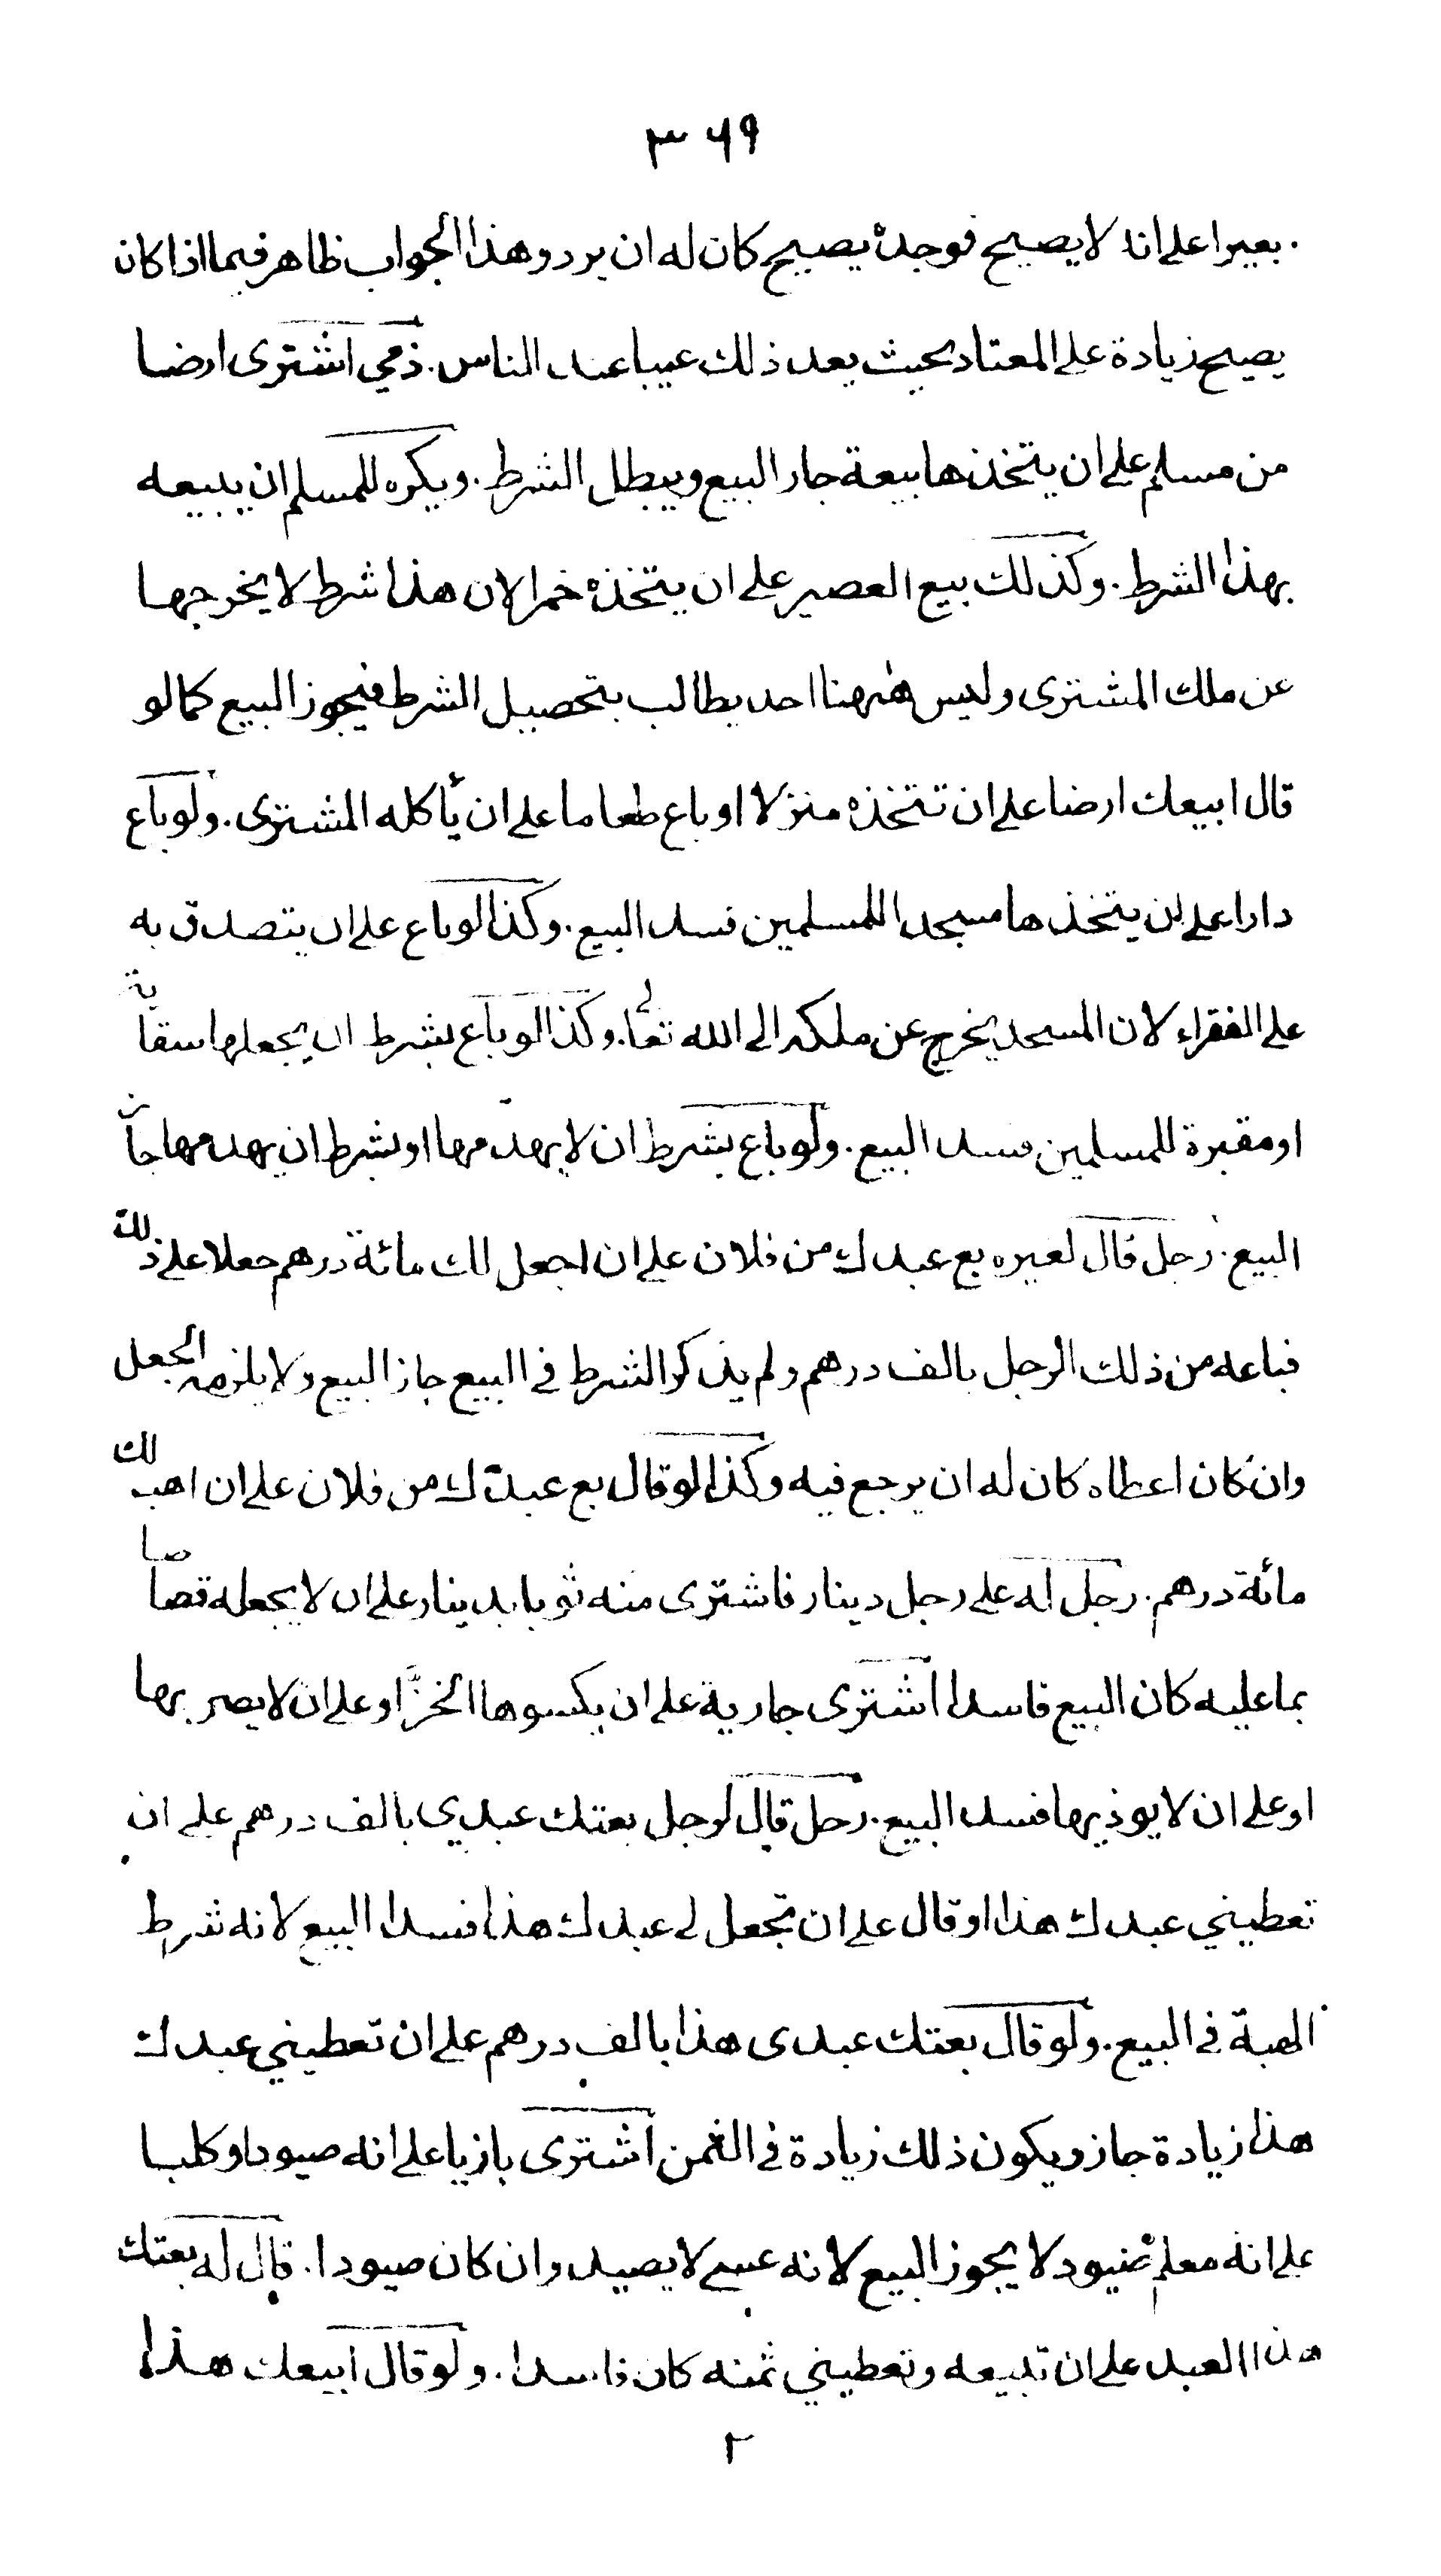 ٣٦٩
بعيرا على انه لا يصيح فوجده يصيح كان له ان يرد وهذا الجواب ظاهر فيما اذا كان
يصيح زيادة على المعتاد بحيث يعد ذلك عيبا عند الناس. ذمي اشترى ارضا
من مسلم على ان يتخذها بيعة جاز البيع ويبطل الشرط. ويكره للمسلم ان يبيعه
بهذا الشرط. وكذلك بيع العصير على ان يتخذه خمرا لان هذا شرط لا يخرجها
عن ملك المشترى وليس ههنا احد يطالب بتحصيل الشرط فيجوز البيع كما لو
قال ابيعك ارضا على ان تتخذه منزلا او باع طعاما على ان يأكله المشترى. ولو باع
دارا على ان يتخذها مسجدا للمسلمين فسد البيع. وكذا لو باع على ان يتصدق به
على الفقراء لان المسجد يخرج عن ملكه الى الله تعالى. وكذا لو باع بشرط ان يجعلها سقاية
او مقبرة للمسلمين فسد البيع. ولو باع بشرط ان لا يهدمها او بشرط ان يهدمها جاز
البيع. رجل قال لغيره بع عبدك من فلان على ان اجعل لك مائة درهم جعلا على ذلك
فباعه من ذلك الرجل بالف درهم ولم يذكر الشرط في البيع جاز البيع ولا يلزمه الجعل
وان كان اعطاه كان له ان يرجع فيه وكذا لو قال بع عبدك من فلان على ان اهب لك
مائة درهم. رجل له على رجل دينار فاشترى منه ثوبا بدينار على ان لا يجعله قصاصا
بما عليه كان البيع فاسدا اشترى جارية على ان يكسوها الخز او على ان لا يضربها
او على ان لا يوذيها فسد البيع. رجل قال لرجل بعتك عبدي بالف درهم على ان
تعطيني عبدك هذا او قال على ان تجعل لي عبدك هذا فسد البيع لانه شرط
الهبة في البيع. ولو قال بعتك عبدى هذا بالف درهم على ان تعطيني عبدك
هذا زيادة جاز ويكون ذلك زيادة في الثمن اشترى بازيا على انه صيود او كلبا
على انه معلم صيود لا يجوز البيع لانه عسى لا يصيد وان كان صيودا. قال له بعتك
هذا العبد على ان تبيعه وتعطيني ثمنه كان فاسدا. ولو قال ابيعك هذا
٢